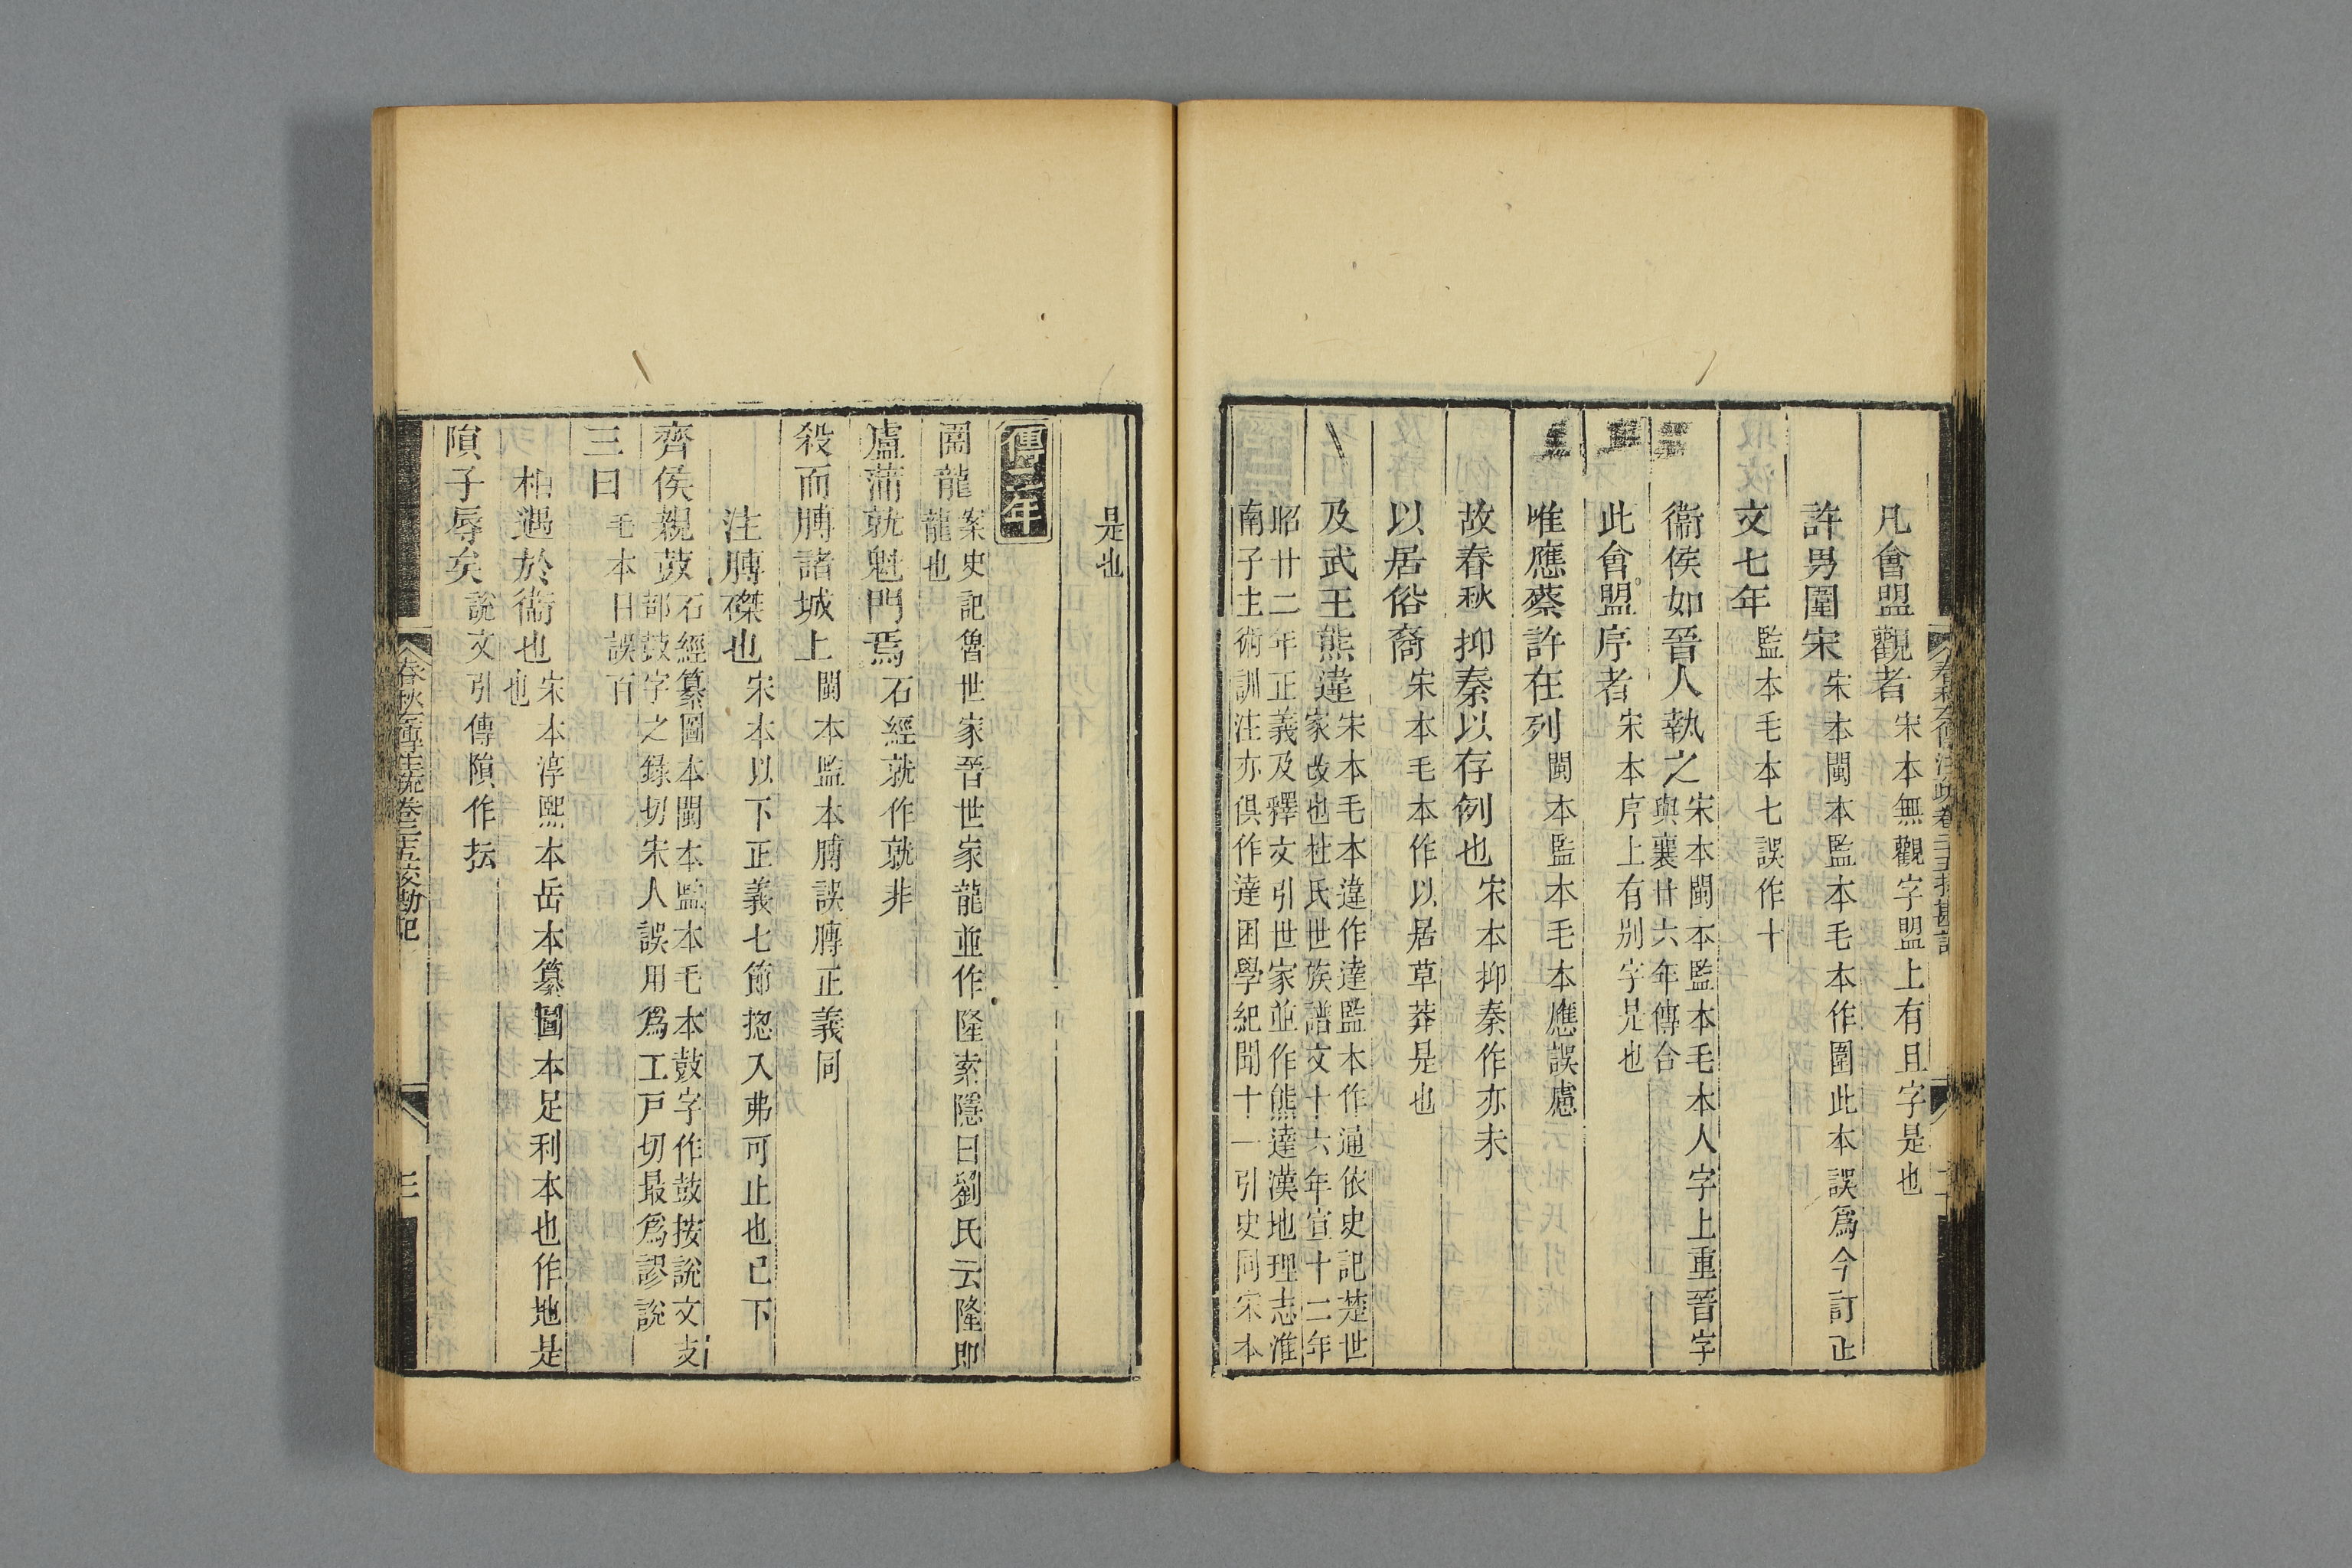 凡會盟觀者宋本無觀字盟上有且字是也
許男圍宋宋本閩本監本毛本作圍此本誤爲今訂正
文七年監本毛本七誤作十
衞侯如晉人執之宋本閩本監本毛本人字上重晉字
與襄廿六年傳合
此會盟序者宋本序上有別字是也
唯應蔡許在列閩本監本毛本應誤慮
故春秋抑秦以存例也宋本抑秦作亦未
以居俗裔宋本毛本作以居草莽是也
及武王熊達宋本毛本違作達監本作通依史記楚世
家改也杜氏世族譜文十六年宣十二年
昭廿二年正義及釋文引世家並作熊達漢地理志淮
南子主術訓注亦俱作達困學紀聞十一引史同宋本
是也
傳二年
圍龍案史記魯世家晉世家龍並作隆索隱曰劉氏云隆即
龍也
盧蒲就魁門焉石經就作就非
殺而膊諸城上閩本監本膊誤膞正義同
注膊磔也宋本以下正義七節揔入弗可止也已下
齊侯親鼓石經纂圖本閩本監本毛本鼓字作鼓按說文支
部鼓字之錄切宋人誤用爲工戸切最爲謬說
三日毛本日誤百
相遇於衞也宋本淳熙本岳本纂圖本足利本也作地是
也
隕子辱矣說文引傳隕作抎
春秋左傳注疏卷二十五校勘記